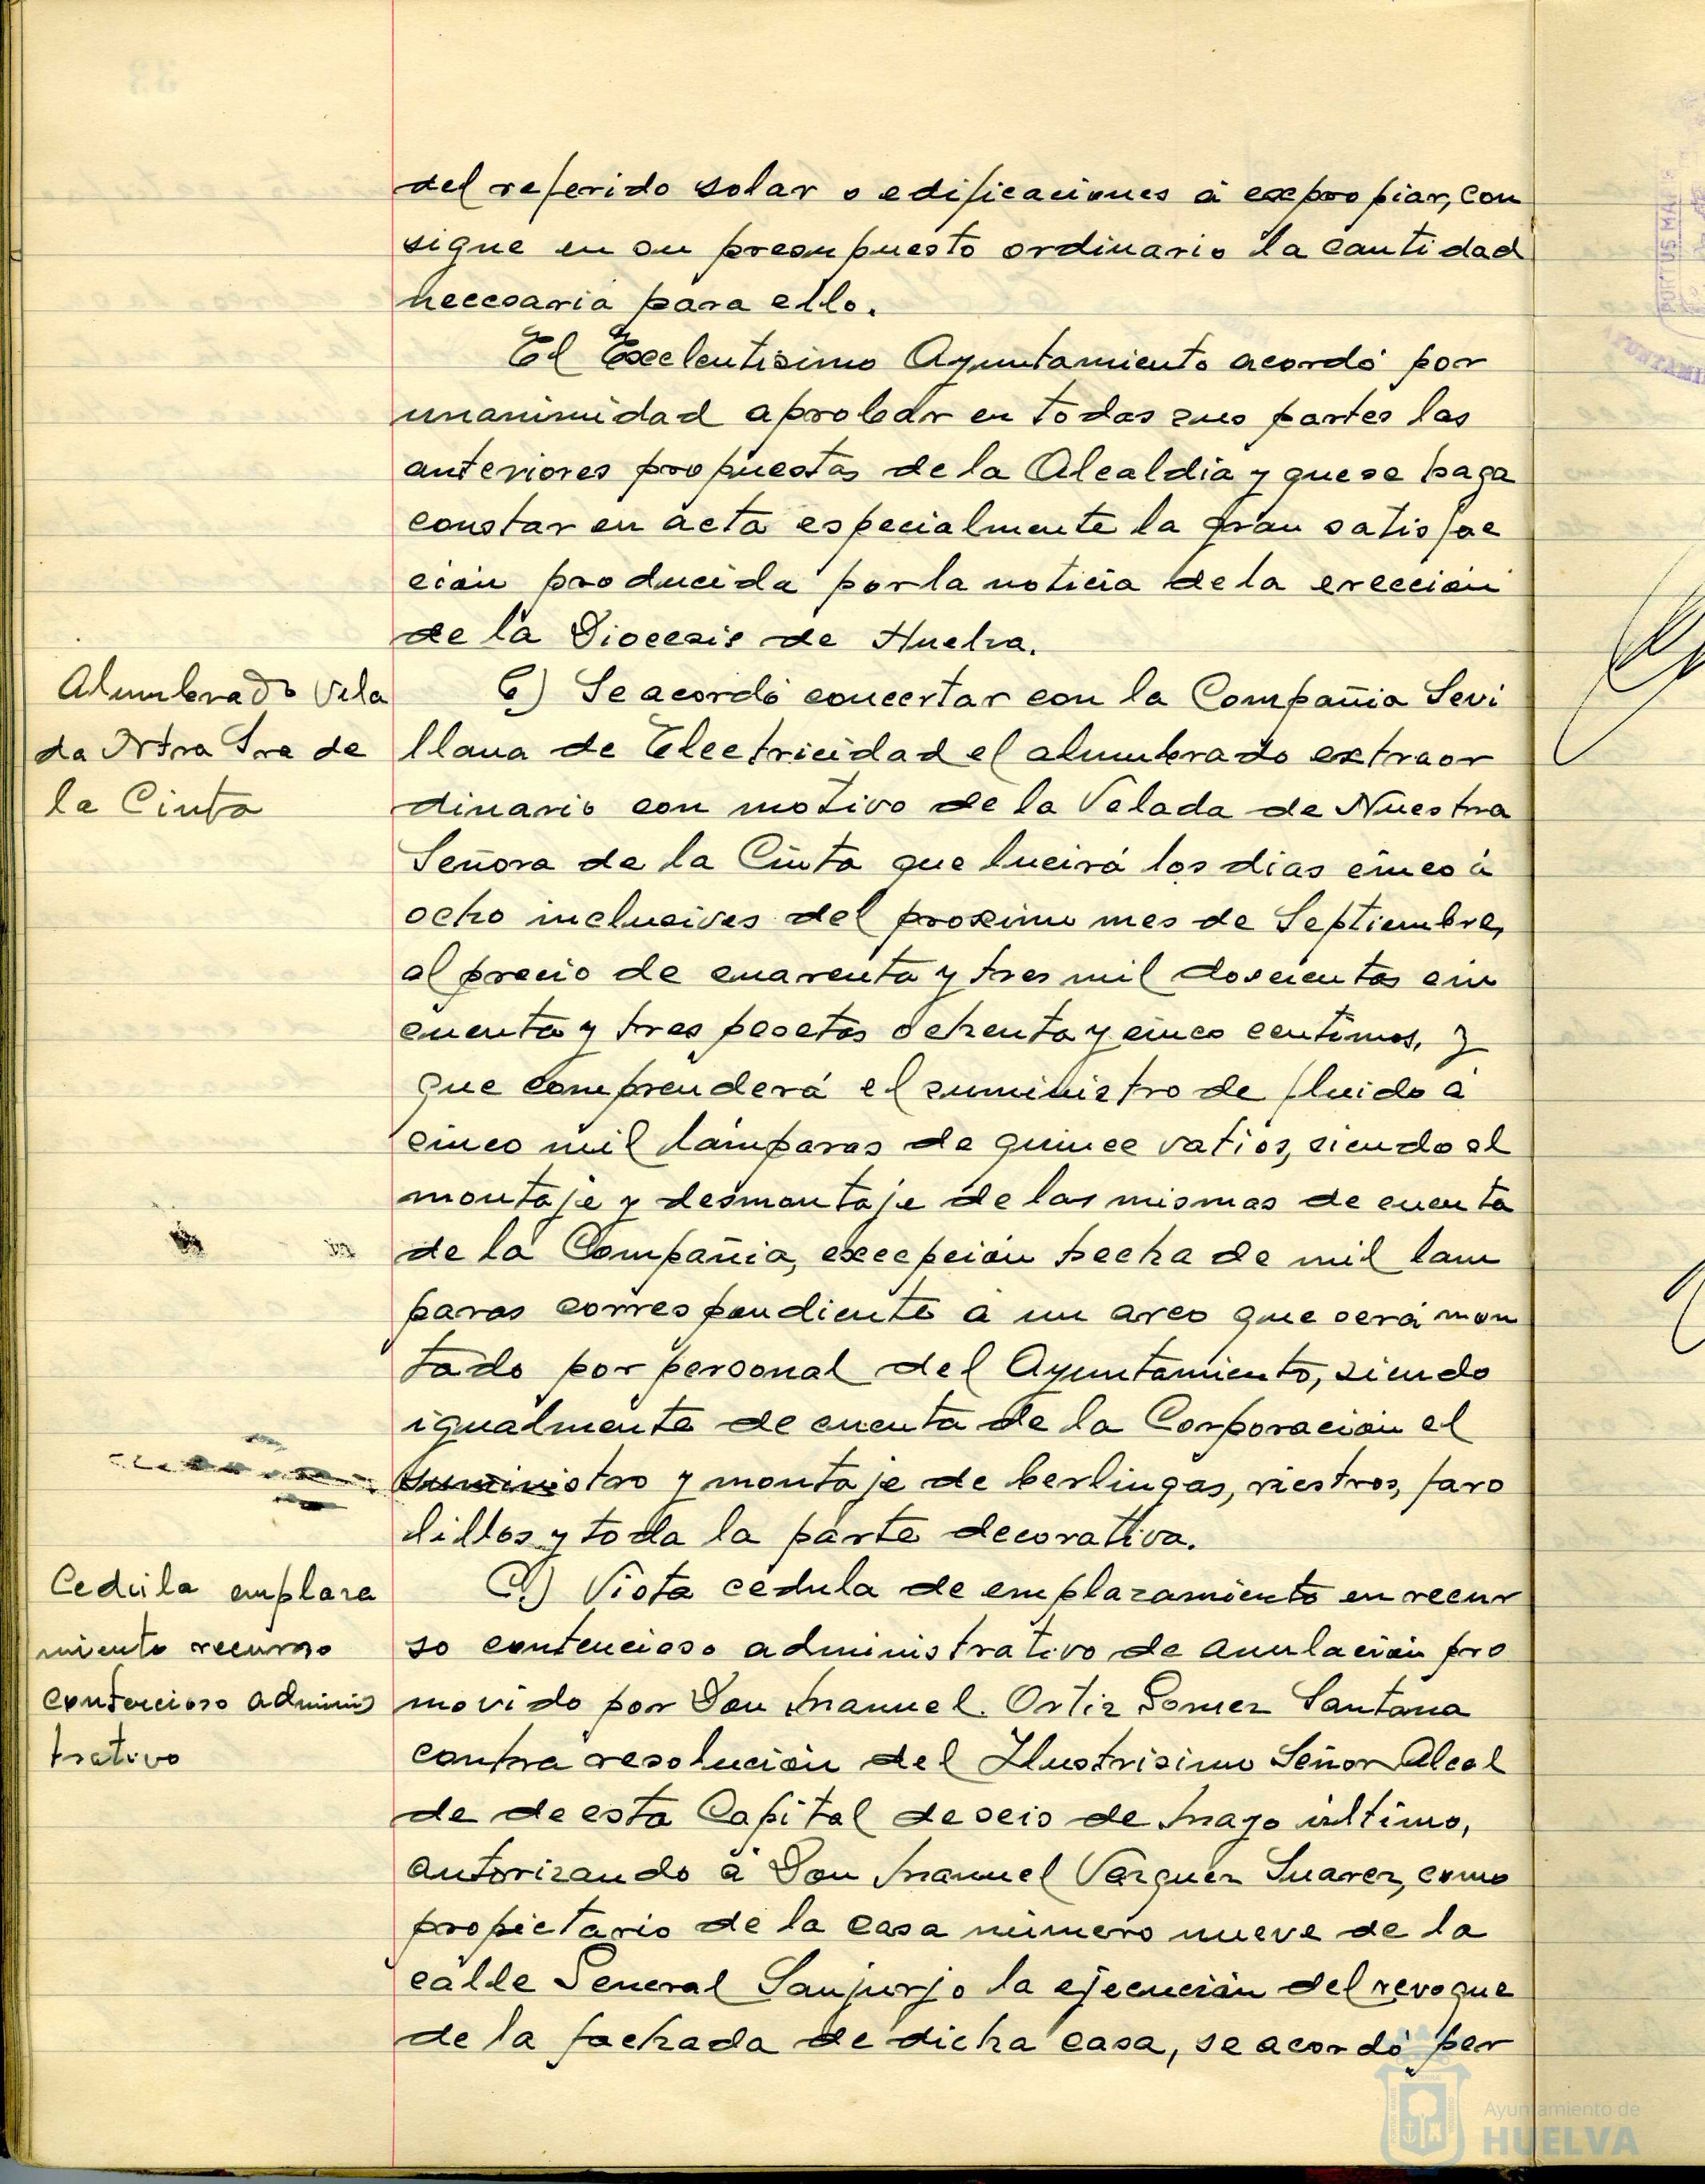 del referido solar o edificaciones á expropiar, con
signe en su presupuesto ordinario la cantidad
necesaria para ello.
El Excelentisimo Ayuntamiento acordó por
unanimidad aprobar en todas sus partes las
anteriores propuestas de la Alcaldia y que se haga
constar en acta especialmente la gran satisfac
ción producida por la noticia de la erección
de la Diocesis de Huelva.
Alumbrado Vela
da Ntra Sra de
la Cinta
B) Se acordó concertar con la Compañia Sevi
llana de Electricidad el alumbrado extraor
dinario con motivo de la Velada de Nuestra
Señora de la Cinta que lucirá los dias cinco á
ocho inclusives del proximo mes de Septiembre,
al precio de cuarenta y tres mil doscientas cin
cuenta y tres pesetas ochenta y cinco centimos, y
que comprenderá el suministro de fluido á
cinco mil lámparas de quince vatios, siendo el
montaje y desmontaje de las mismas de cuenta
de la Compañia, excepción hecha de mil lam
paras correspondiente a un arco que será mon
tado por personal del Ayuntamiento, siendo
igualmente de cuenta de la Corporación el
suministro y montaje de berlingas, riestros, faro
lillos y toda la parte decorativa.
Cedula emplaza
miento recurso
contencioso adminis
trativo
C) Vista cedula de emplazamiento en recur
so contencioso administrativo de anulación pro
movido por Don Manuel Ortiz Gomez Santana
contra resolución del Ilustrisimo Señor Alcal
de de esta Capital de seis de Mayo último,
autorizando á Don Manuel Vazquez Suarez, como
propietario de la casa número nueve de la
calle General Sanjurjo la ejecución del revoque
de la fachada de dicha casa, se acordó per
Ayuntamiento de
HUELVA